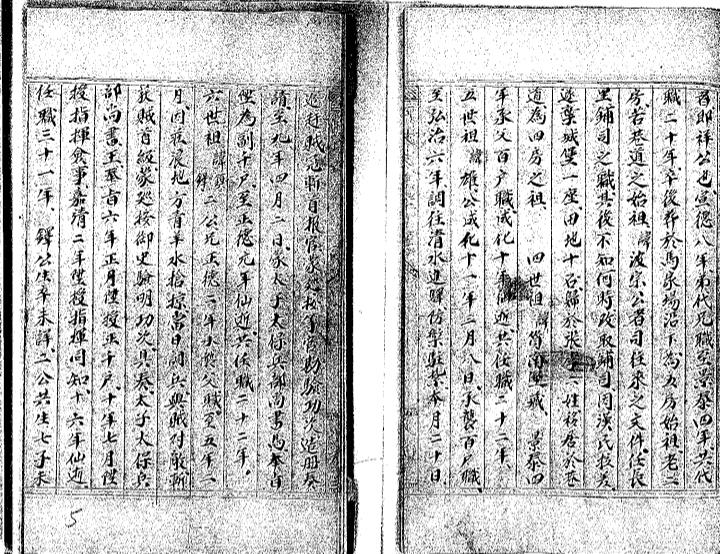 首即祥公也宣德八年弟代兄職至景泰四年共代
職二十年卒後葬於馬家場沿下為五房始祖老二
房若恭道之始祖諱波宗公者司往來之文件任長
里鋪司之職其後不知何時改取鋪司因漢民較
遂葉城堡一座田地十石歸於張二姓移居於
道為四房之祖 四世祖諱 職景泰四
年承父百户職成化十年仙逝共任職二十二年
五世祖諱雄公成化十一年二月八日承襲百户職
至弘治六年調往清水進驛防禦駐紮本月二十日
追赶賊冠斬首报官蒙 官勘驗功次造册奏
請至九年四月二日蒙太子太保兵部尚書馬奉旨
陞為副千户至正德元年仙逝共任職二十二年
六世祖諱 二公先正德二年大襲父職至五年二
月因 地方青羊水搶掠當日調兵與賊付敵斬
获賊首級蒙巡按御史驗明功次具奏太子太保兵
部尚書王奉旨六年正月陞授正千户十年七月陞
授指揮僉事嘉靖二年陞授指揮同知十六年仙逝
任職三十一年 鐸公生卒未詳二公共生七子未
5